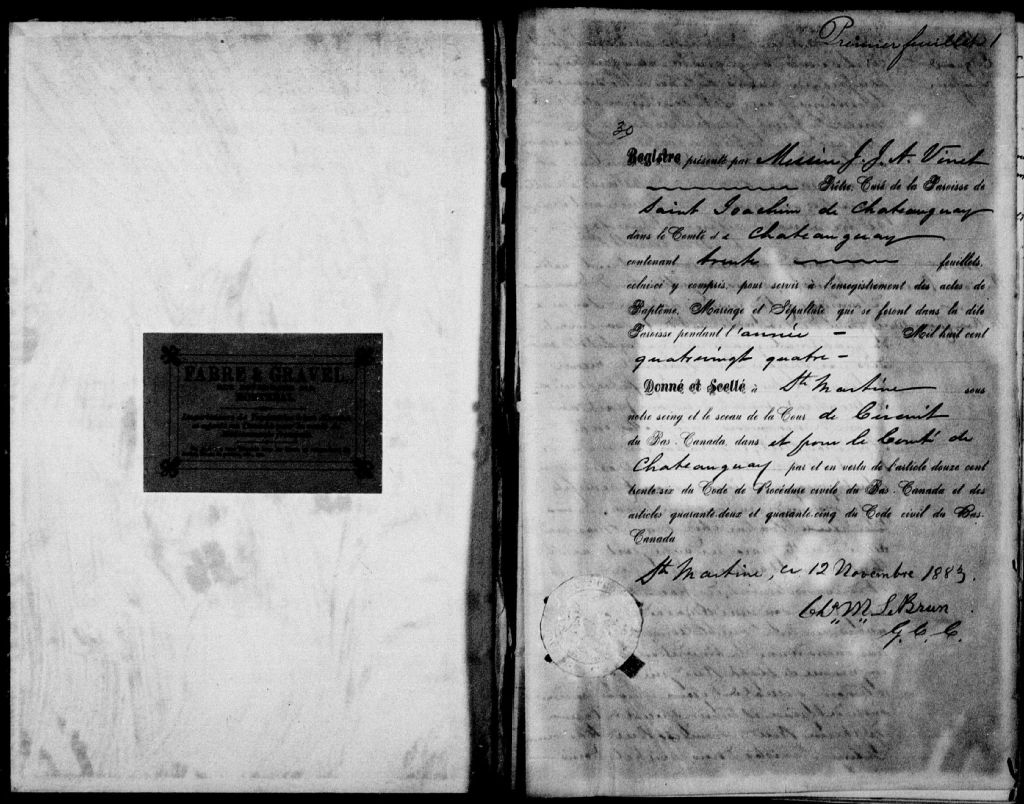 FABRE & GRAVEL
Premier feuillet 1
30
Registre présenté par Messire J. J. A. Vinet
Prêtre, Curé de la Paroisse de
Saint Joachim de Chateauguay
dans le Comté de Chateauguay
contenant trente feuillets,
celui-ci y compris, pour servir à l'enregistrement des actes de
Baptême, Mariage et Sépulture que se feront dans la dite
Paroisse pendant l'année - Mil huit cent
quatrevingt quatre -
Donné et Scellé à Ste Martine sous
notre seing et le sceau de la Cour de Circuit
du Bas-Canada, dans et pour le Comté de
Chateauguay par et en vertu de l'article douze cent
trente-six du Code de Procédure civile du Bas-Canada et des
articles quarante-deux et quarante-cinq du Code civil du Bas-
Canada
Ste Martine, ce 12 Novembre 1883.
Chs "M" LeBrun
G. C. C.